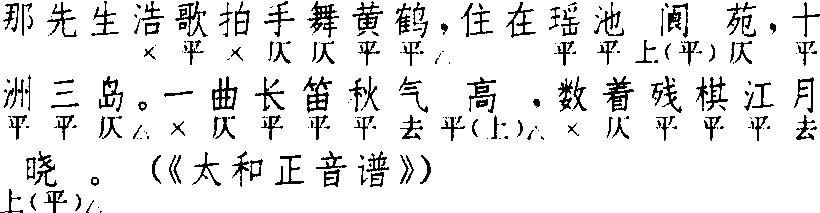 那先生浩歌拍手舞黄鹤，住在瑶池阆苑，十
× 平 × 仄 仄 平 平△ 平 平 上(平) 仄 平
洲三岛。一曲长笛秋气高，数着残棋江月
平 平 仄△ × 仄 平 平 平 去 平(上)△ × 仄 平 平 平 去
晓。（《太和正音谱》）
上(平)△